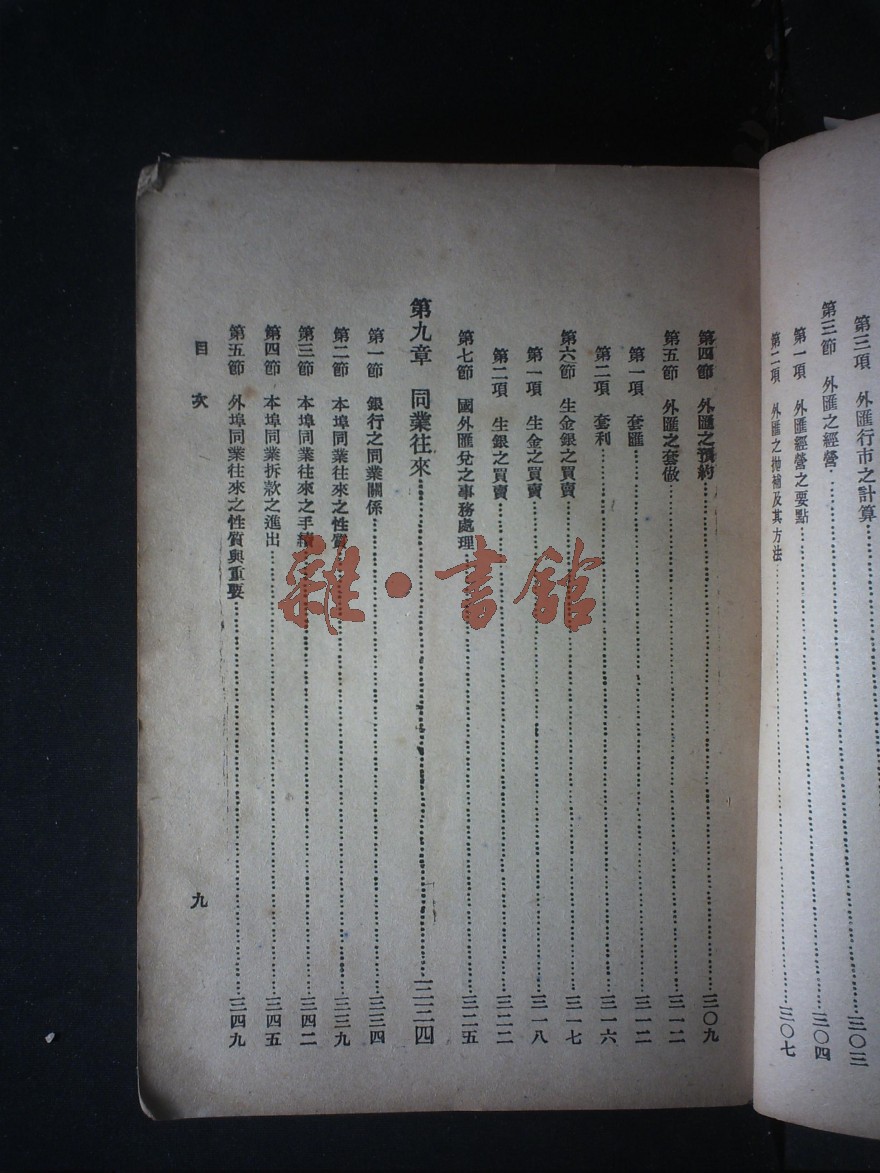 第三項 外匯行市之計算……三〇三
第三節 外匯之經營……三〇四
第一項 外匯經營之要點
第二項 外匯之拋補及其方法……三〇七
第四節 外匯之預約……三〇九
第五節 外匯之套做……三一二
第一項 套匯……三一二
第二項 套利……三一六
第六節 生金銀之買賣……三一七
第一項 生金之買賣……三一八
第二項 生銀之買賣……三二二
第七節 國外匯兌之事務處理……三二五
第九章 同業往來
第一節 銀行之同業關係……三三四
第二節 本埠同業往來之性質……三三九
第三節 本埠同業往來之手續……三四二
第四節 本埠同業拆款之進出……三四五
第五節 外埠同業往來之性質與重要……三四九
目次
九
雜·書館